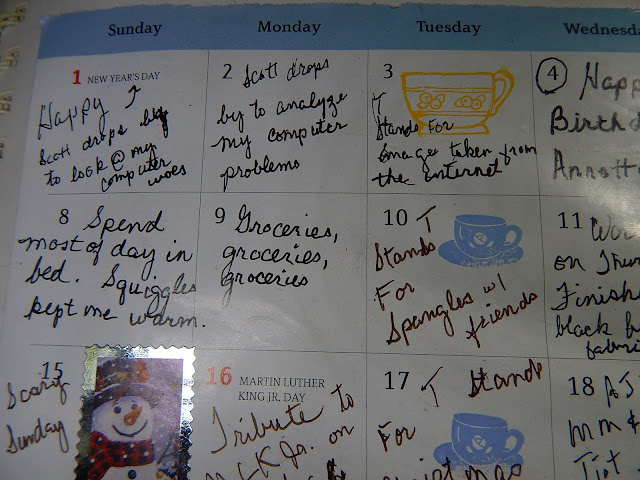 Sunday Monday Tuesday Wednesda
1 NEW YEAR'S DAY
Happy
Scott drops by
to look @ my
computer
woes
2 Scott drops
by to analyze
my computer
problems
3
T
Stands For
Image taken from
the internet
4 Happ
Birthd
Annett
8 Spend
most of day in
bed. Squiggles
kept me warm.
9 Groceries,
groceries,
groceries
10 T
Stands
For
Spangles w/
friends
11 Wor
on Thur
Finish
black b
fabric
15
Scarf
Sunday
16 MARTIN LUTHER
KING JR. DAY
Tribute to
MLK Jr. on
17 T Stands
For
Christmas
18 AJ
mm &
Tiot